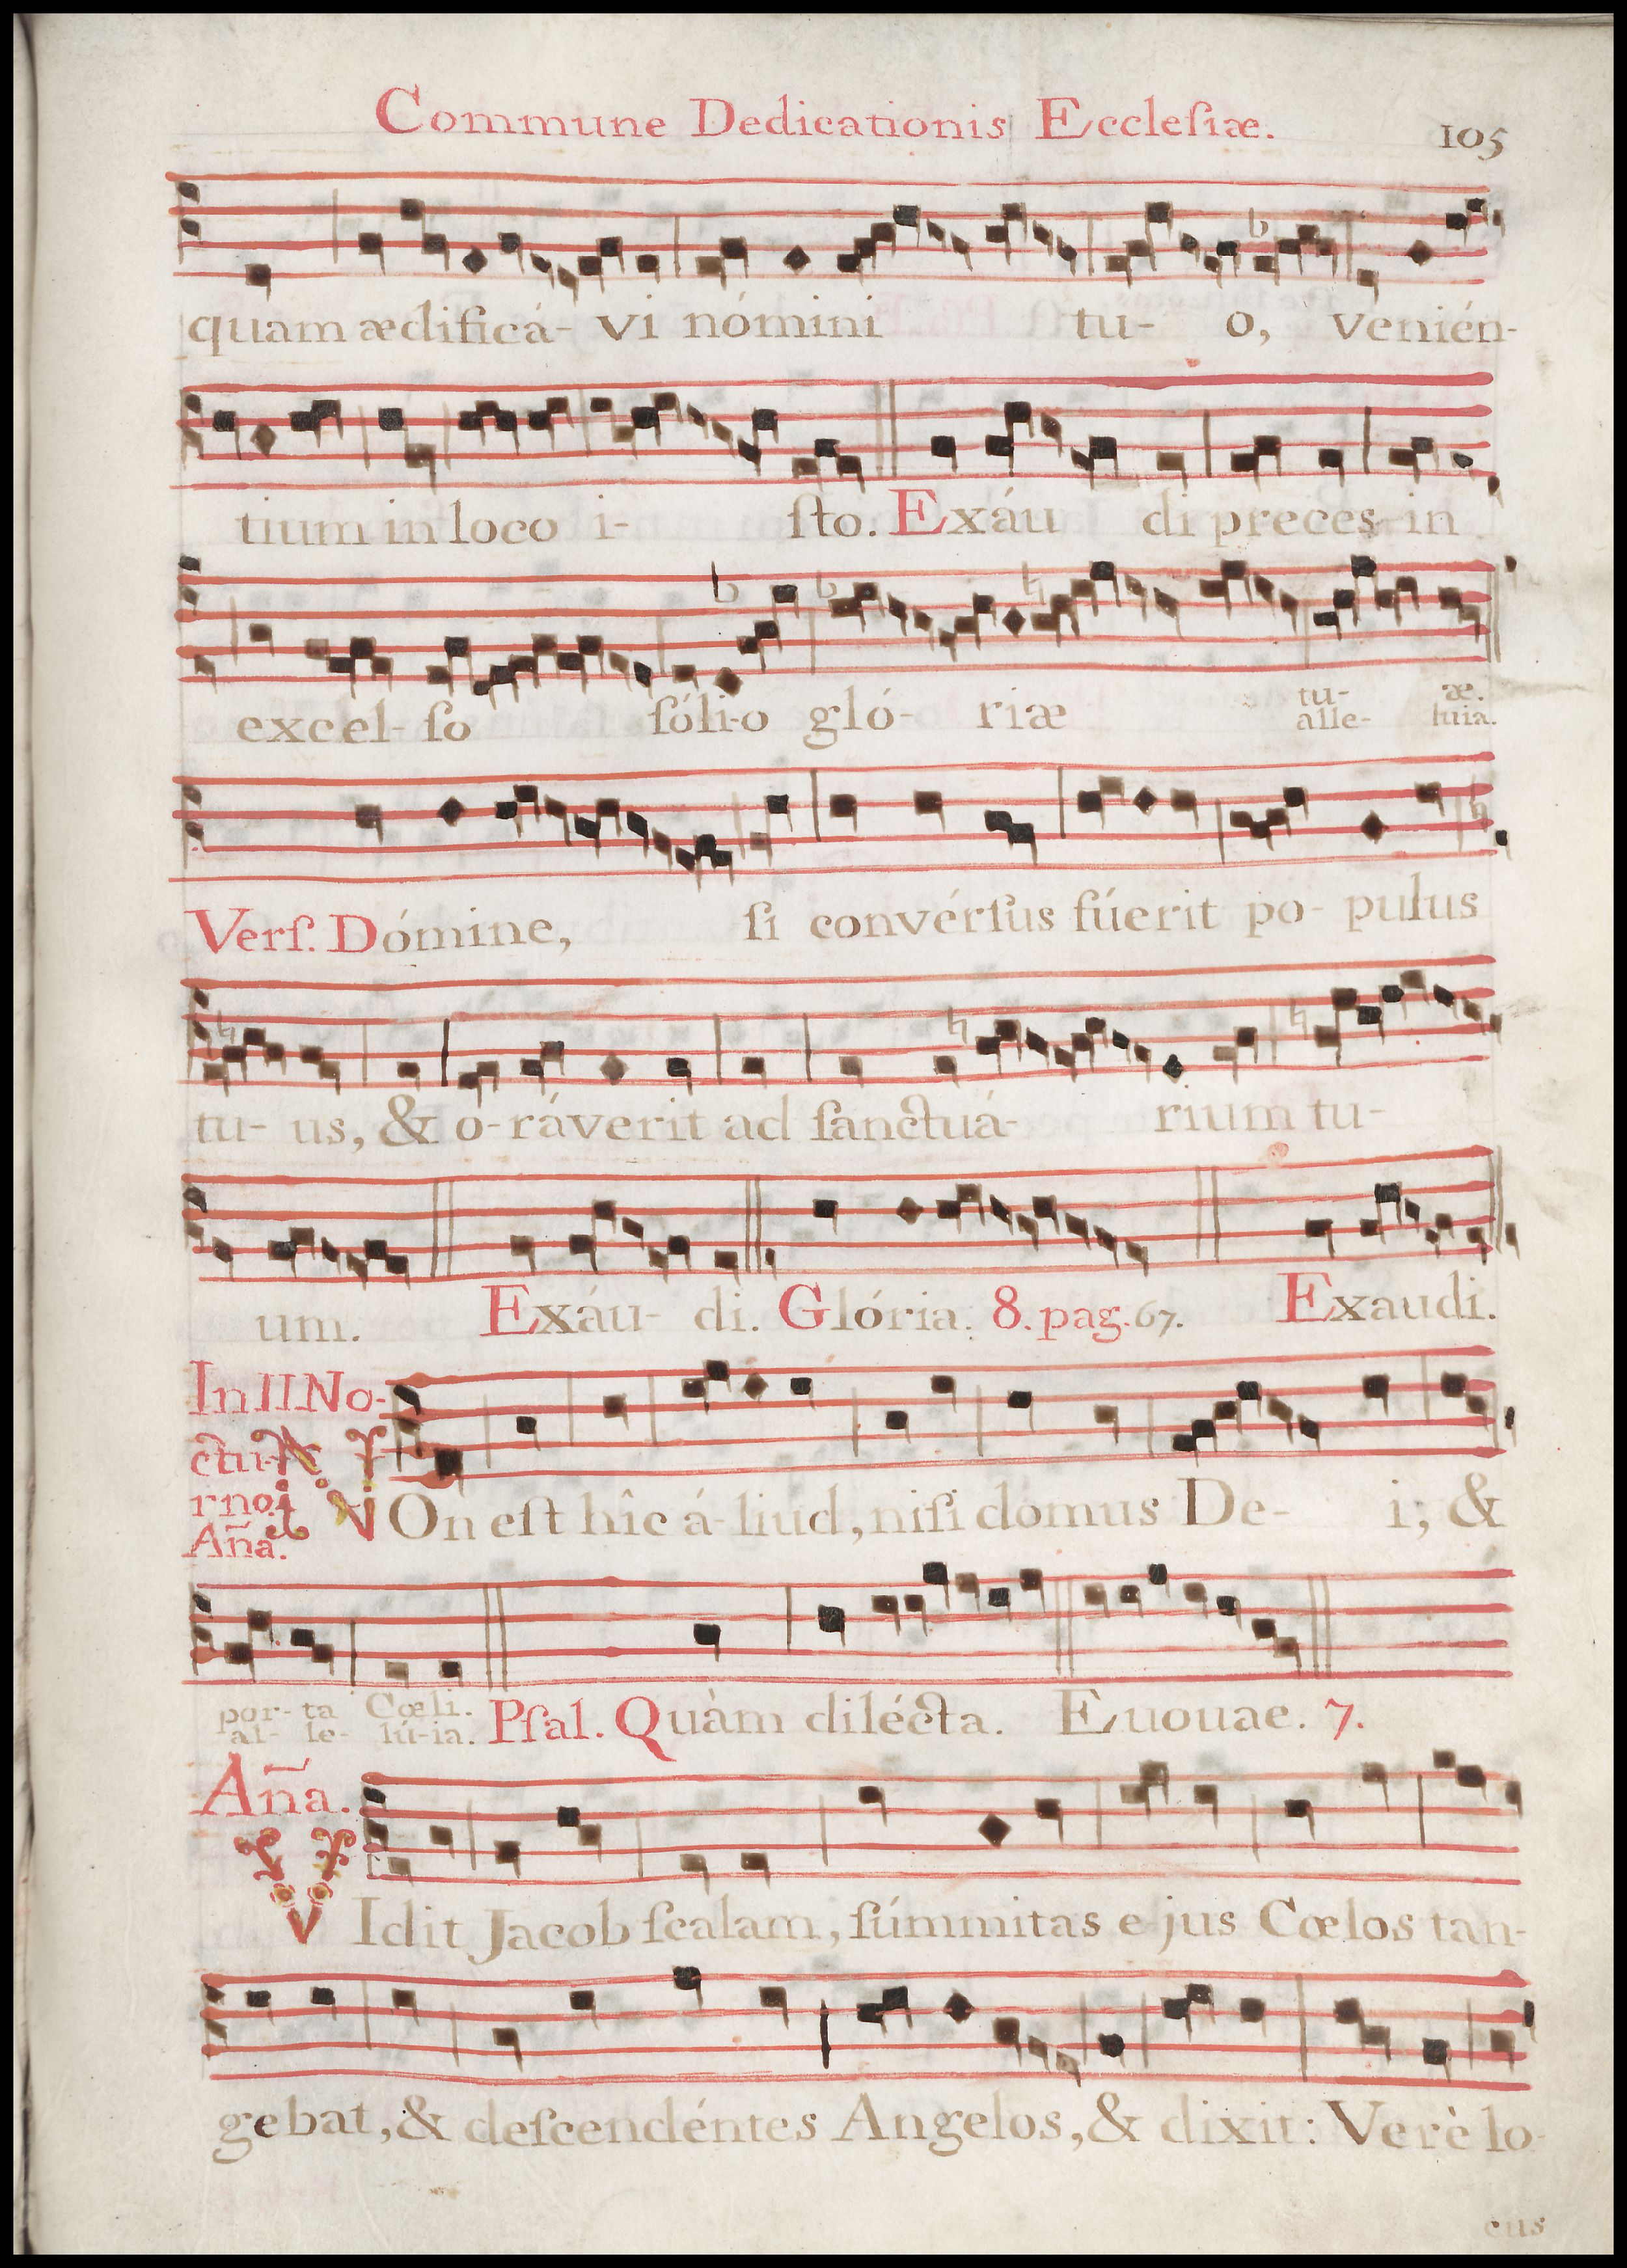 Commune Dedicationis Eccleſiæ. 105
quam ædificá- vi nómini tu- o, venién-
tium in loco i- ſto. Exáu di preces in
excel- ſo ſóli-o gló- riæ tu- æ.
alle- luia.
Verſ. Dómine, ſi convérſus fúerit po- pulus
tu- us, & o-ráverit ad ſanctuá- rium tu-
um. Exáu- di. Glória. 8. pag. 67. Exaudi.
In II No-
ctu-
rno.
Aña.
NOn eſt hîc á-liud, niſi domus De- i; &
por- ta Cœli. Pſal. Quàm dilécta. Euouae. 7.
al- le- lú-ia.
Aña.
VIdit Jacob ſcalam, ſúmmitas e-jus Cœlos tan-
gebat, & deſcendéntes Angelos, & dixit: Verè lo-
cus